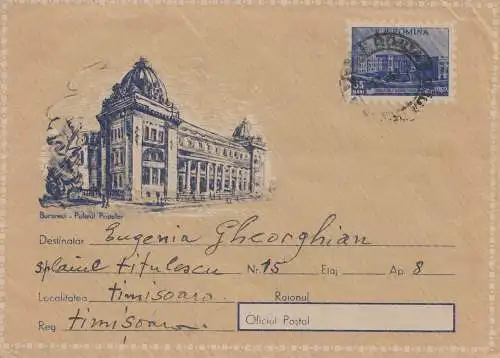 R.P. ROMINA
55
BANI
București - Palatul Poștelor
Destinatar Eugenia Gheorghian
Splaiul titulescu Nr. 15 Etaj Ap. 8
Localitatea timisoara Raionul
Reg. timișoara Oficiul Poștal